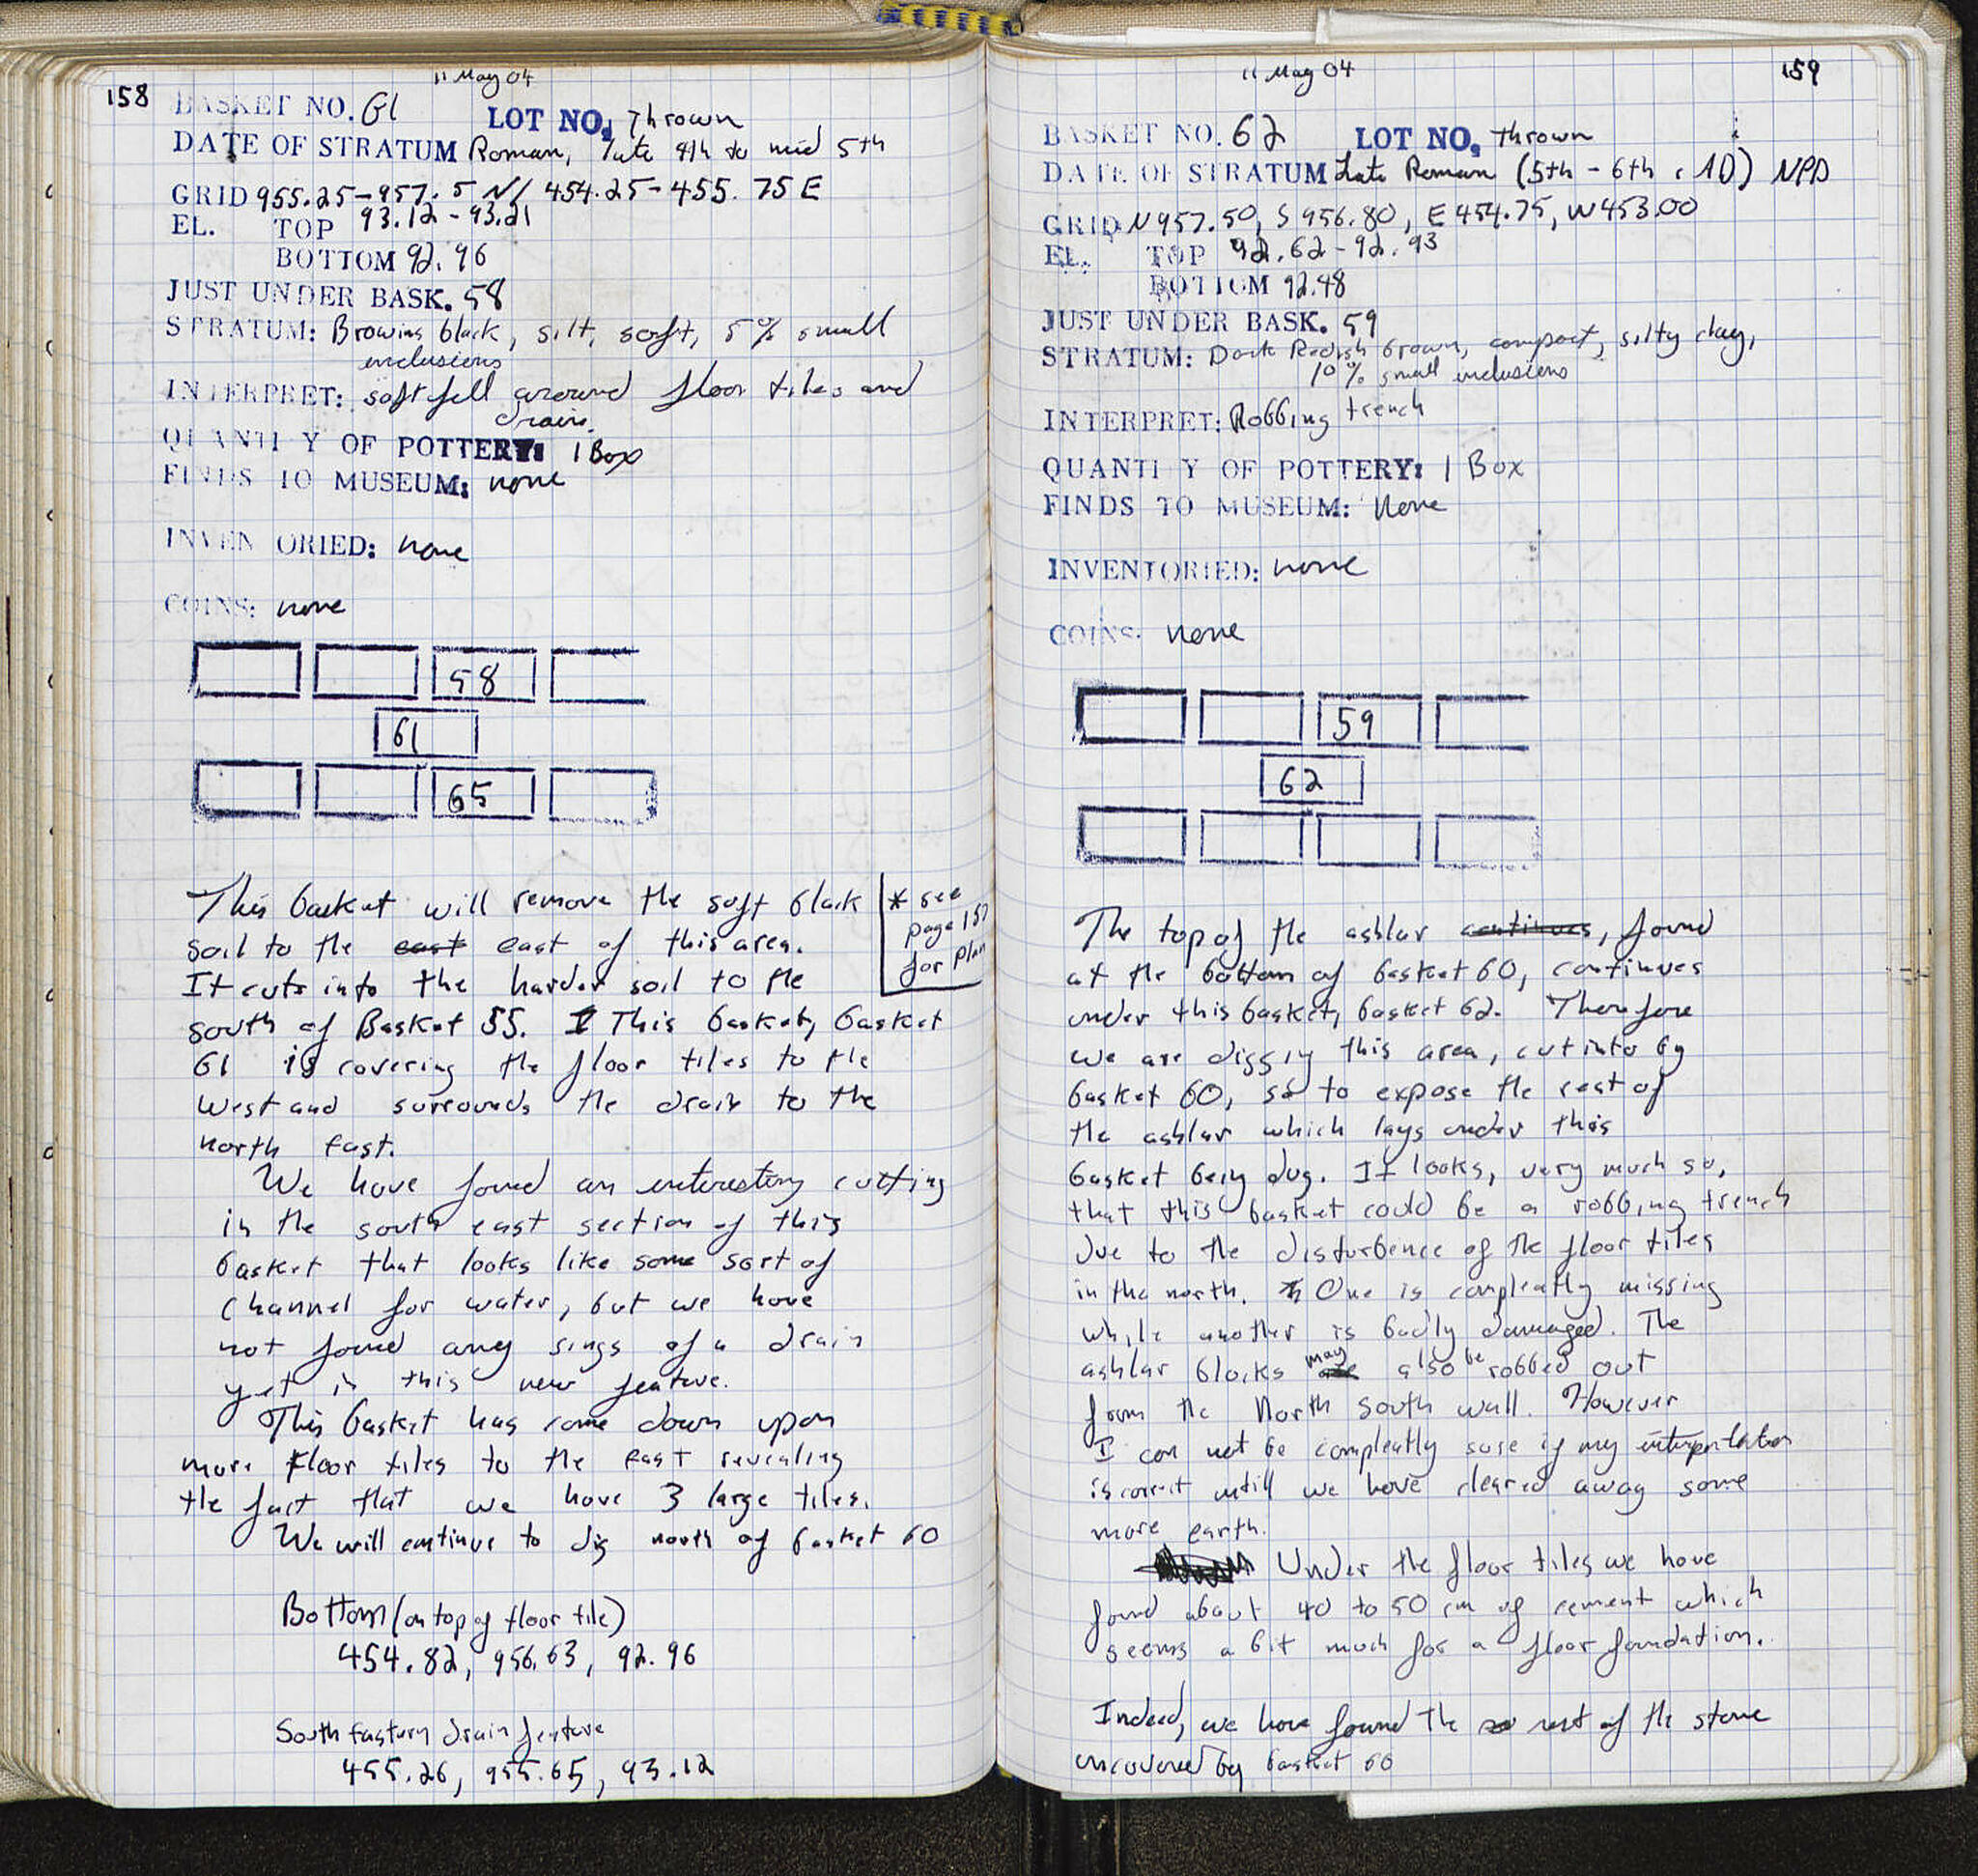 11 May 04
158
BASKET NO. 61 LOT NO. Thrown
DATE OF STRATUM Roman, late 4th to mid 5th
GRID 955.25-957.5 N/ 454.25-455.75 E
EL. TOP 93.12-93.21
BOTTOM 92.96
JUST UNDER BASK. 58
STRATUM: Browins black, silt, soft, 5% small
inclusions
INTERPRET: soft fill around floor tiles and
drain.
QUANTITY OF POTTERY: 1 Box
FINDS TO MUSEUM: none
INVENTORIED: none
COINS: none
58
61
65
This basket will remove the soft black
soil to the east east of this area.
It cuts into the harder soil to the
south of Basket 55. I This basket, basket
61 is covering the floor tiles to the
west and surrounds the drain to the
north East.
* see
page 157
for plan
We have found an interesting cutting
in the south east section of this
basket that looks like some sort of
channel for water, but we have
not found any sings of a drain
yet in this new feature.
This basket has come down upon
more floor tiles to the East revealing
the fact that we have 3 large tiles.
We will continue to dig north of basket 60
Bottom (on top of floor tile)
454.82, 956.63, 92.96
South Eastern drain feature
455.26, 955.65, 93.12
11 May 04
159
BASKET NO. 62 LOT NO. thrown
DATE OF STRATUM Late Roman (5th - 6th c AD) NPD
GRID N957.50, S 956.80, E 454.75, W453.00
EL. TOP 92.62-92.93
BOTTOM 92.48
JUST UNDER BASK. 59
STRATUM: Dark Redish brown, compact, silty clay,
10% small inclusions
INTERPRET: Robbing trench
QUANTITY OF POTTERY: 1 Box
FINDS TO MUSEUM: None
INVENTORIED: none
COINS: none
59
62
The top of the ashlar continues, found
at the bottom of basket 60, continues
under this basket, basket 62. Therefore
we are diggin this area, cut into by
basket 60, so to expose the rest of
the ashlar which lays under this
basket being dug. It looks, very much so,
that this basket could be a robbing trench
due to the disturbence of the floor tiles
in the north. One is compleatly missing
while another is badly damaged. The
ashlar blocks may also be robbed out
from the North South wall. However
I can not be compleatly sure if my interpretation
is correct untill we have cleared away some
more earth.
Under the floor tiles we have
found about 40 to 50 cm of cement which
seems a bit much for a floor foundation.
Indeed, we have found the rest of the stone
uncovered by basket 60